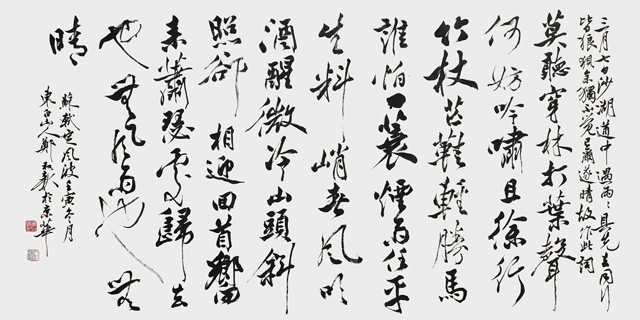 三月七日沙湖道中遇雨雨具先去同行
皆狼狽余獨不覺已爾遂晴故作此詞
莫聽穿林打葉聲
何妨吟嘯且徐行
竹杖芒鞋輕勝馬
誰怕一蓑煙雨任平
生料峭春風吹
酒醒微冷山頭斜
照卻相迎回首嚮
來蕭瑟處歸去
也無風雨也無
晴
蘇軾定風波壬寅冬月
東山人鄭於京華